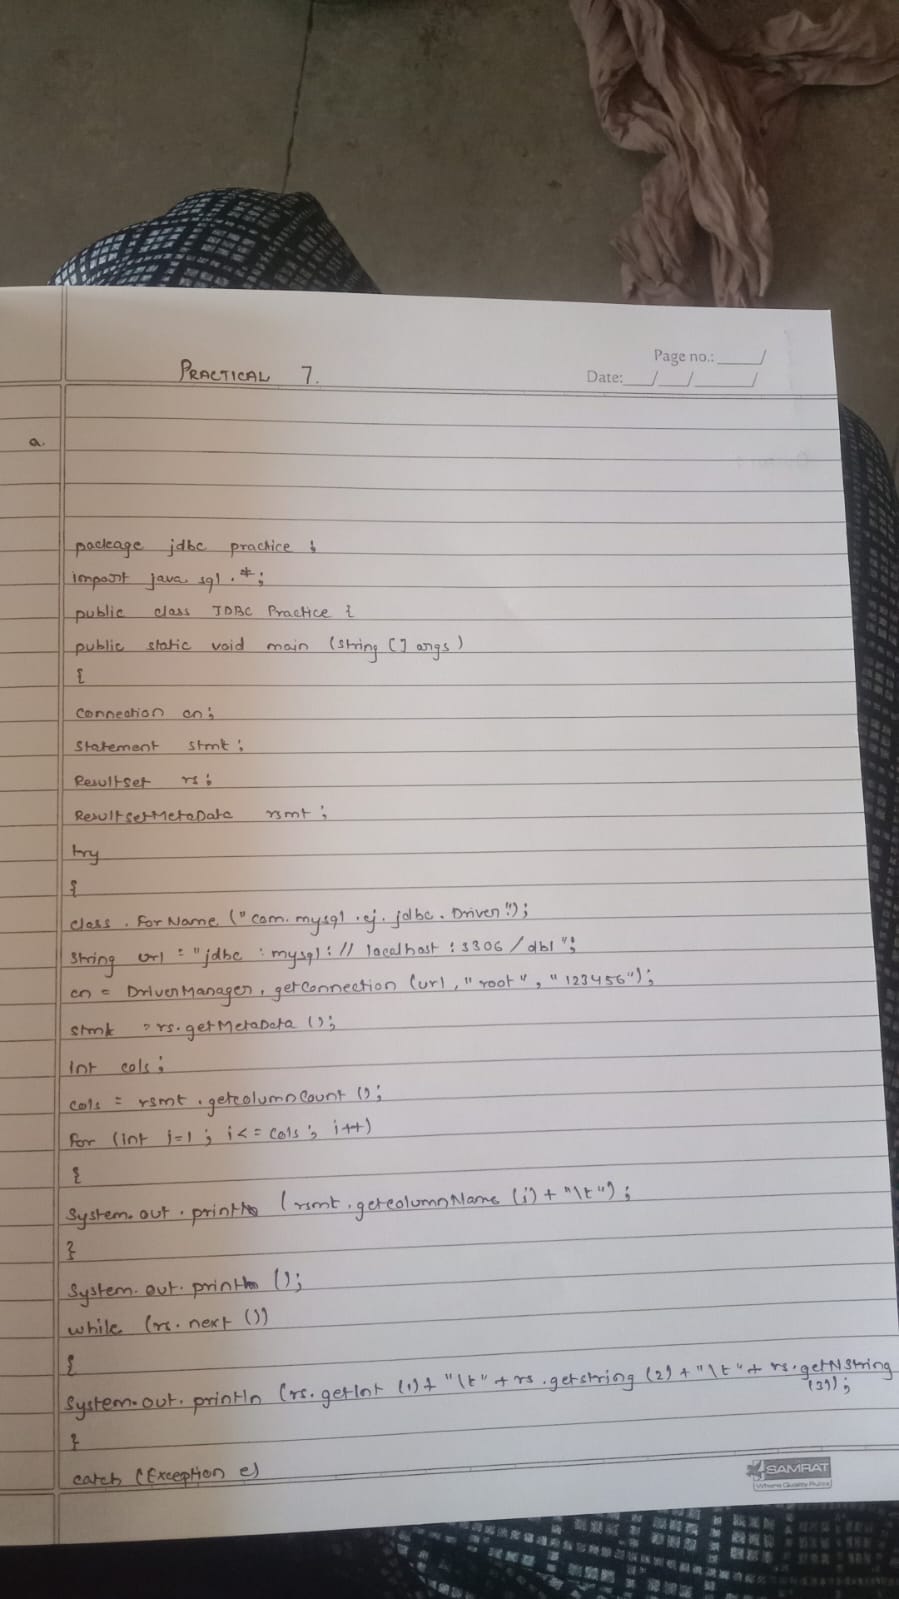 Page no.: ___/
PRACTICAL 7.
Date: __/__/____/
a.
package jdbc practice ;
import java sql . * ;
public class JDBC Practice {
public static void main (String [] args)
{
Connection cn ;
Statement stmt ;
ResultSet rs ;
ResultSetMetaData rsmt ;
try
{
class . ForName ("com. mysql . cj . jdbc . Driver") ;
String url = "jdbc : mysql : // localhost : 3306 / db1 " ;
cn = DriverManager, getConnection (url , "root" , "123456") ;
stmk = rs. getMetaData () ;
int cols ;
cols = rsmt . getcolumnCount () ;
For (int i=1 ; i<= cols ; i++)
{
System. out . println ( rsmt . getcolumnName (i) + "\t") ;
}
System. out. println () ;
while (rs. next ())
{
System. out. println (rs. getInt (1) + "\t" + rs . getstring (2) + "\t" + rs. getNString
(3)) ;
}
catch (Exception e)
SAMRAT
Where Quality Rules